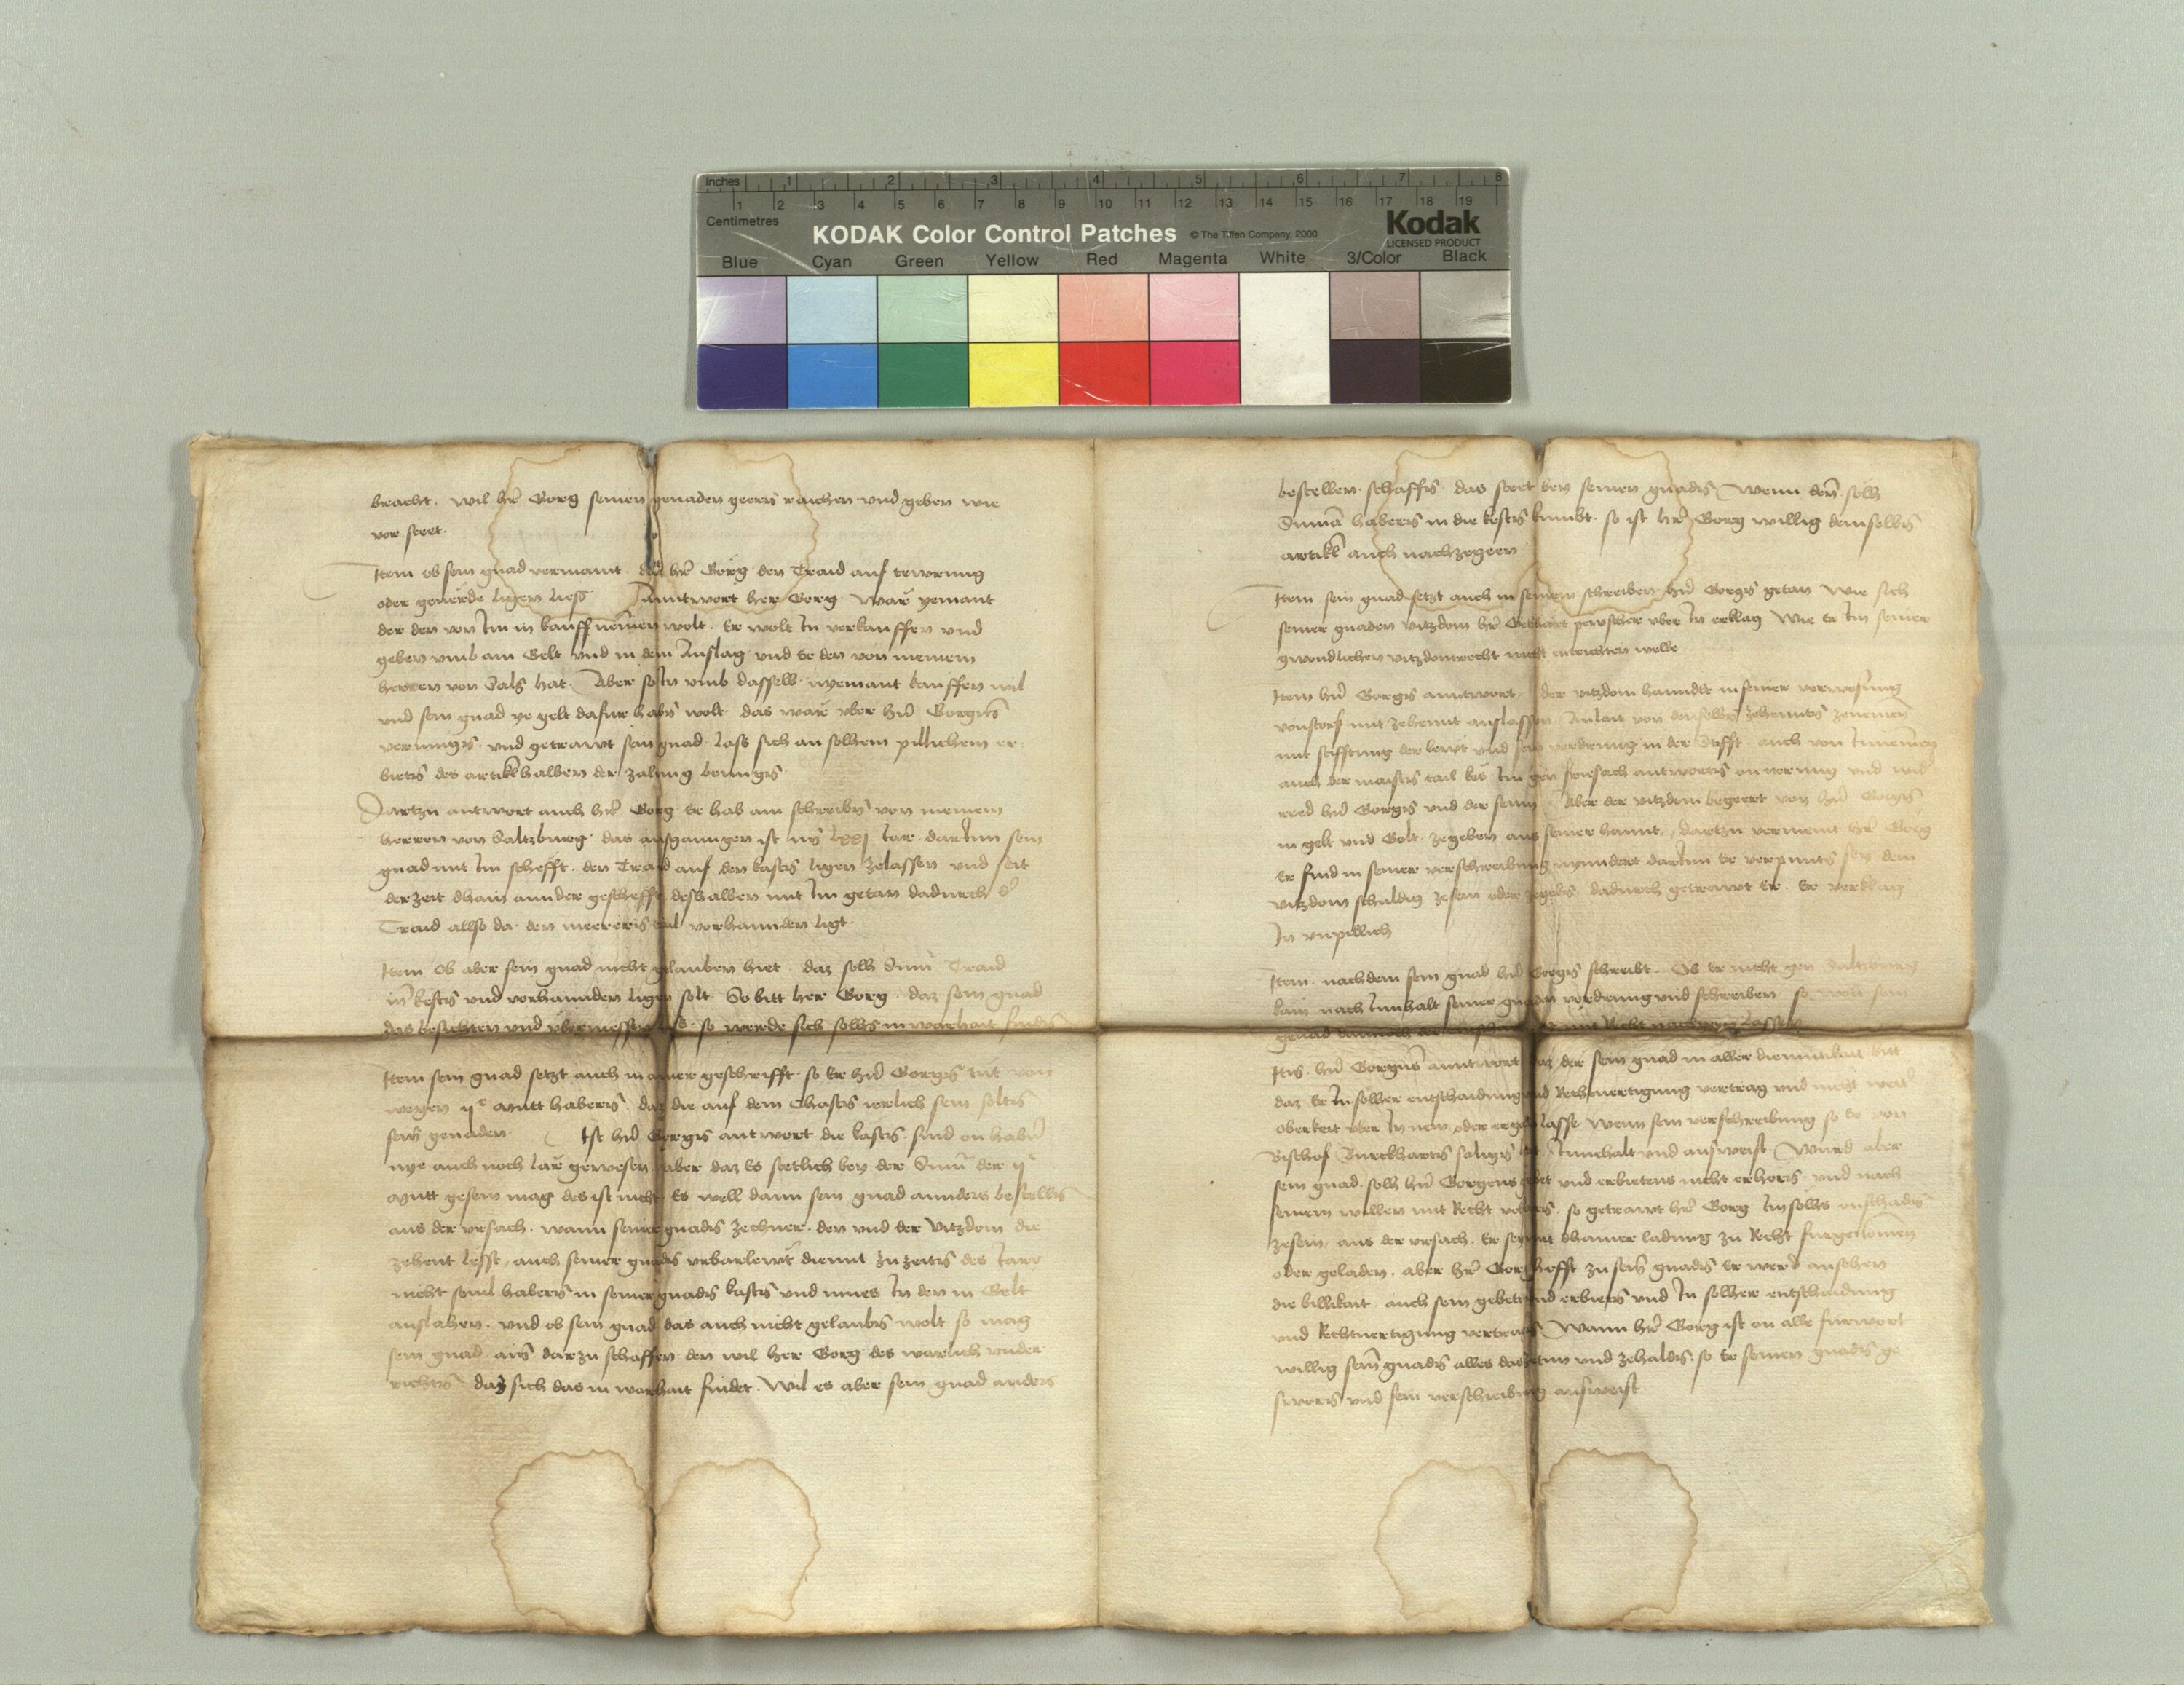 Inches 1 2 3 4 5 6 7 8
1 2 3 4 5 6 7 8 9 10 11 12 13 14 15 16 17 18 19
Centimetres
KODAK Color Control Patches © The Tiffen Company, 2000 Kodak
LICENSED PRODUCT
Blue Cyan Green Yellow Red Magenta White 3/Color Black
bracht. wil hr̄ Gorg seinen genaden geern̄ raichen vnd geben wie
vor steet.
Item ob sein gnad vermaint. das hr̄ Gorg den Traid auf tewrung
oder geuërde ligen liess Anntwort her Gorg. wär yemant
der den von Im in kauff nemen wolt. Er wolt In verkauffen vnd
geben vmb ain Gelt vnd in dem Anslag vnd er den von meinem
herren von hat. Aber so In vmb dasselb nyemant kauffen wil
vnd sein gnad ye gelt dafur habn̄ wolt das wär vber hern̄ Gorgen
vermugn̄. vnd getrawt sein gnad. lass sich an solhem pillichem er
bietn̄ des artikl halben der zalung benugn̄
Dartzu antwort auch hr̄ Gorg Er hab ain schreibn̄ von meinem
herren von Saltzburg. das ausganngen ist im̄ lxxj Iar. darInn sein
gnad mit Im schefft. den Traid auf den kastn̄ ligen zelassen vnd seit
der zeit dhain annder gescheffte deshalben mit Im getan dadurch d̄
Traid allso da. den merern̄ tail vorhannden ligt.
Item Ob aber sein gnad nicht glauben hiet. daz solh Sum̄ Traid
im̄ kestn̄ vnd vorhannden ligen solt. So bitt her Gorg. daz sein gnad
das besichten vnd vbermessen so werde sich solhs in warhait finden
Item sein gnad setzt auch in ainer geschrifft. so Er hern̄ Gorgn̄ tut von
wegen ijc mutt habern̄. daz die auf dem Chastn̄ ierlich sein soltn̄
sein̄ genaden Ist hern̄ Gorgn̄ antwort die kastn̄. sind on habern̄
nye auch noch lär gewesen aber daz Es stetlich bey der Sum̄ der ijc
mutt gesein mag des ist nicht Es well dann sein gnad annders bestelln̄
aus der vrsach. wann seiner gnadn̄ zechner. den vnd der Vitzdom die
zehent lesst, auch seiner gnadn̄ vrbarlewt diennt zu zeitn̄ des Iars
nicht souil habern̄ in seiner gnadn̄ kastn̄ vnd mues In den in Gelt
anslahen. vnd ob sein gnad das auch nicht gelaubn̄ wolt so mag
sein gnad darzu schaffen den wil her Gorg des warlich vnder
richtn̄ daz sich das in warhait findet. Wil es aber sein gnad anders
bestellen. schaffn̄. das steet bey seinen gnadn̄ Wenn solh
Sum̄a habern̄ in die kestn̄ kumbt. so ist hr̄ Gorg willig demselbn̄
artikl auch nachzegeen
Item sein gnad setzt auch in seinem schreiben hern̄ Gorgn̄ getan wie sich
seiner gnaden Vitzdom hr̄ Gebhart pewscher vber In erklag Wie Er Im seiner
gwondlichen vitzdomrecht nicht entrichten welle
Item hern̄ Gorgn̄ anntwort. der vitzdom hanndle in seiner verwesung
vonstorf mit zehennt anslassen. Anlait von denselbn̄ zehenntn̄ zenemen
mit stifftung der lewt vnd sein vordrung in der Stifft. auch von Innemen
auch der maistn̄ tail des Im gen friesach antwortn̄ on vorung vnd wid̄
reed hern̄ Gorgn̄ vnd der sein Aber der vitzdom begeert von hern̄ Gorgn̄
in gelt vnd Golt. zegeben aus seiner hannt. Dartzu vermeint hr̄ Gorg
Er find in seiner verschreibung nynndert darInn Er verpuntn̄ sey dem
vitzdom schuldig zesein oder zegebn̄. dadurch getrawt Er. Er verklag
In vnpillich
Item. nachdem sein gnad hern̄ Gorgn̄ schreibt. Ob Er nicht gen Saltzburg
kam nach Innhalt seiner gnaden vordrung vnd schreiben so wolt sein
gnad dannoch mit Recht lassen
Itm̄. hern̄ Gorgen anntwort daz der sein gnad in aller diemutikait bitt
daz Er In solher entschaidung vnd Rechtuertigung vertrag vnd nicht weit̄
oberkeit vber In new oder ergen lasse wenn sein verschreibung so Er von
Bischof Burckhartn̄ seligen hat Innehalt vnd ausweist Wurd aber
sein gnad. solh hern̄ Gorgens gebet vnd erbietens nicht erhorn̄. vnd nach
seinem willen mit Recht volfarn̄. so getrawt hr̄ Gorg Im solhs onschadn̄
zesein, aus der vrsach. Er sey mit dhainer ladung zu Recht furgenomen
oder geladen. aber hr̄ Gorg hofft zu sein̄ gnadn̄ Er werd ansehen
die billikait. auch sein gebet vnd erbietn̄ vnd In solher entschaidung
vnd Rechtuertigung vertragn̄ Wann hr̄ Gorg ist on alle furwort
willig sein̄ gnadn̄ alles das zetun vnd zehaldn̄. so Er seinen gnadn̄ ge
sworn̄ vnd sein verschreibung ausweist